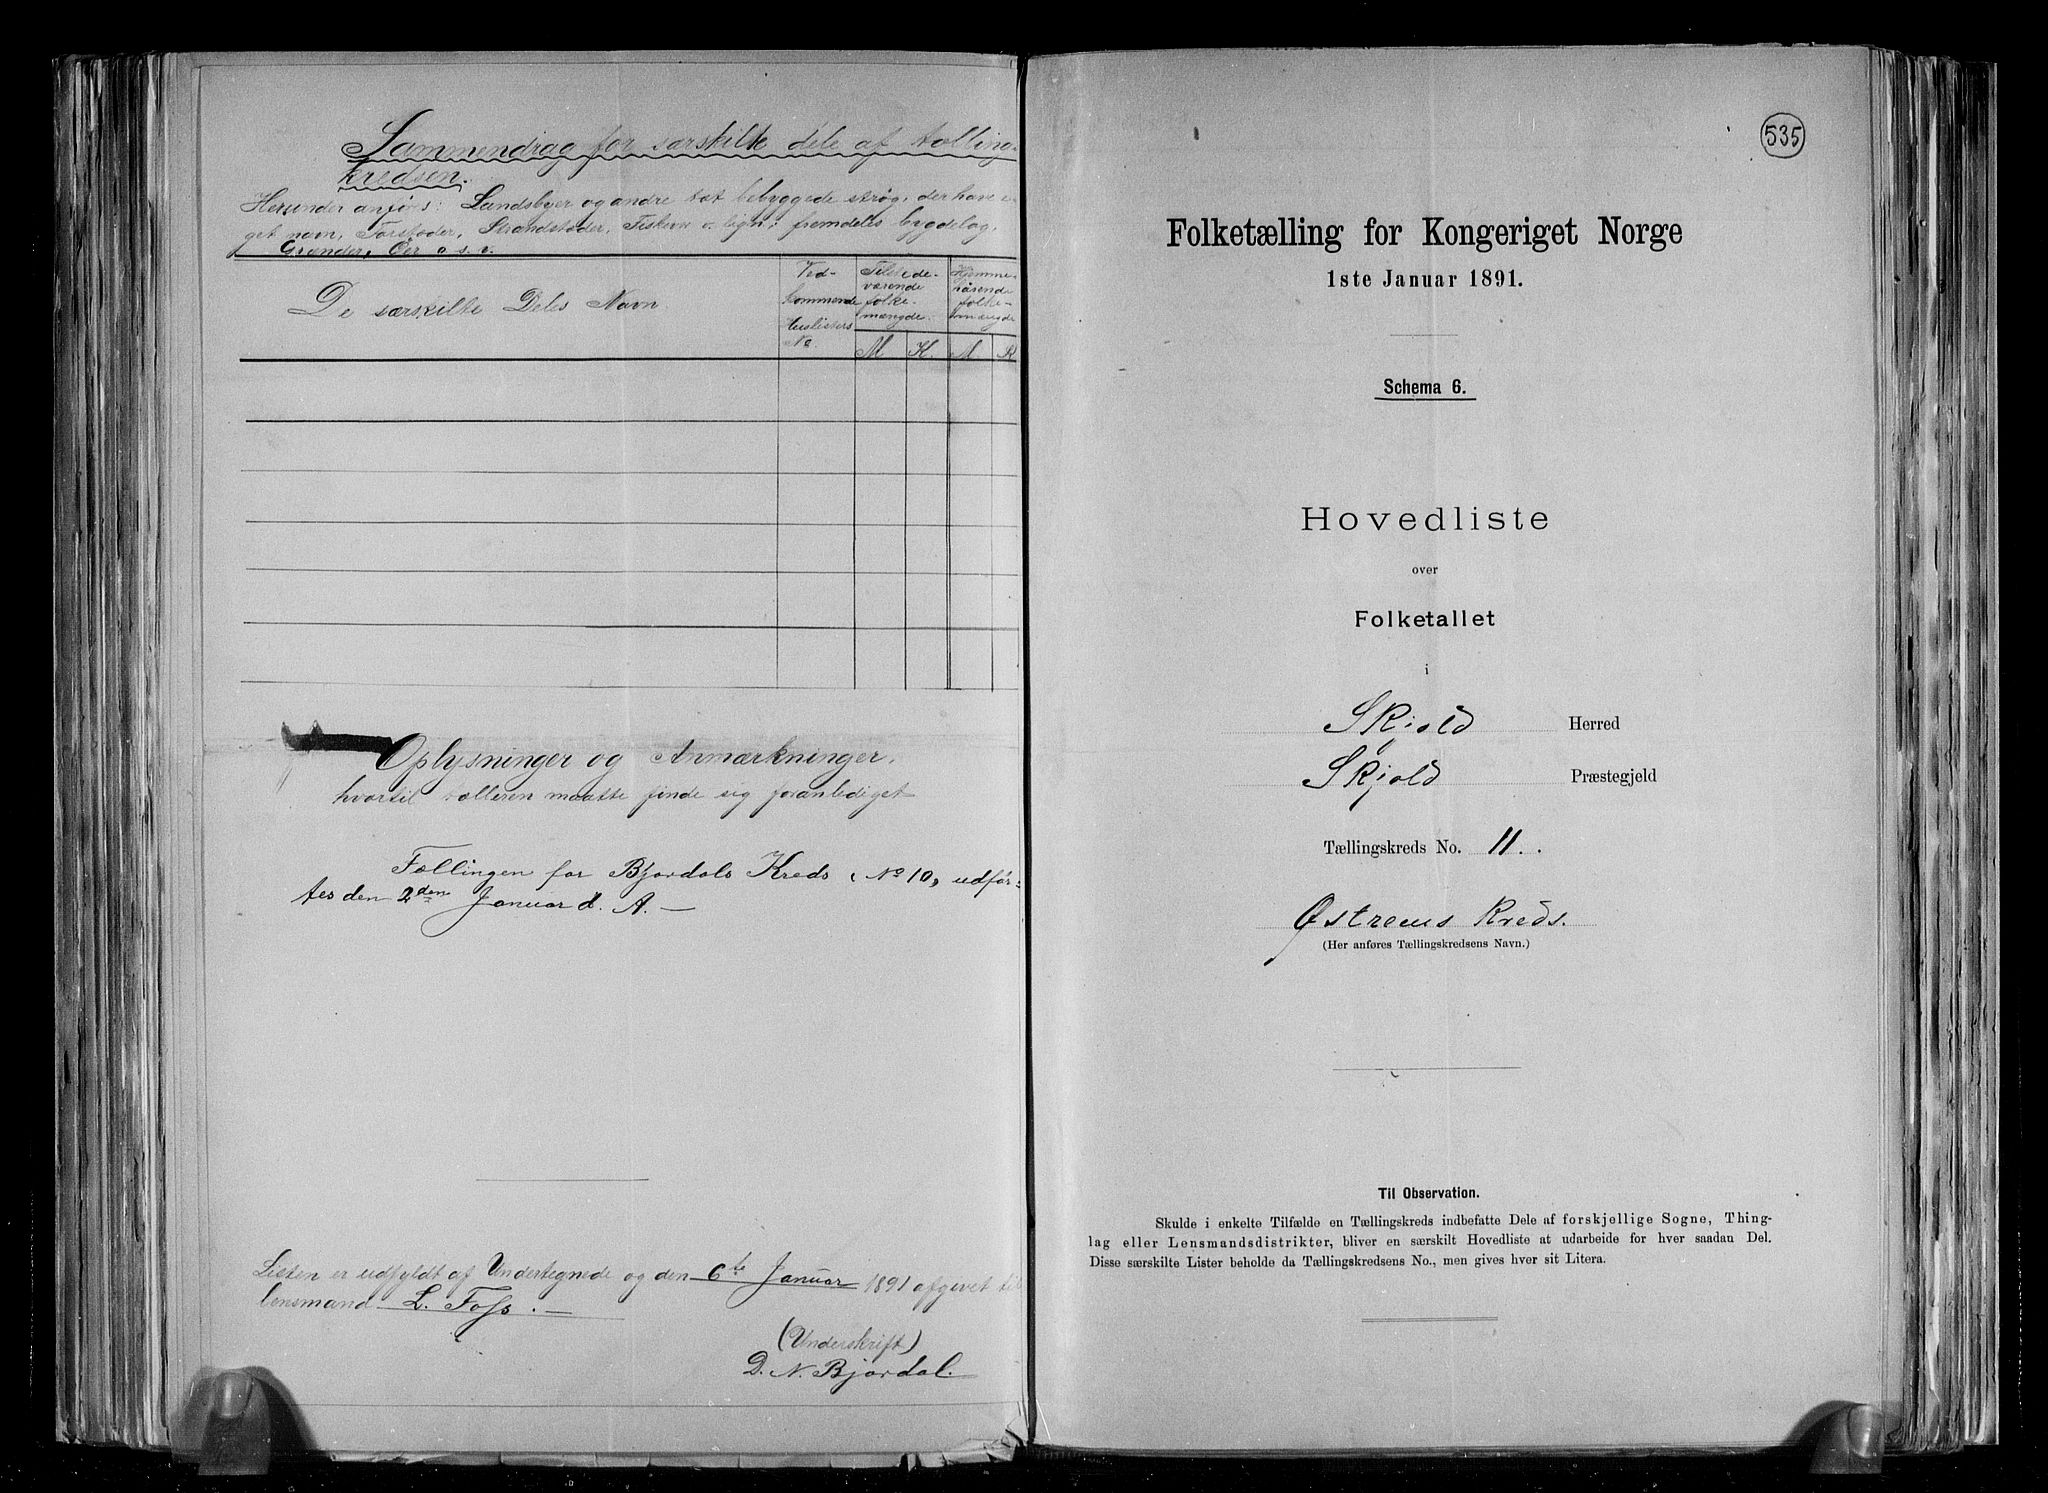 Sammendrag for særskilte dele af tælling-
kredsen.
Herunder anføres: Landsbyer og andre tæt bebyggede strøg, der have e-
get navn, Forstæder, Strandstæder, Fiskevær o. lign; fremdeles bygdelag,
Grænder, Øer o. s. v.
De særskilte Deles Navn
Ved-
kommende
Huslisters
No.
Tilstede-
værende
folke-
mængde.
Hjemme-
hørende
folke-
mængde
M K. M. K
Oplysninger og Anmærkninger,
hvortil tælleren maatte finde sig foranlediget
Tællingen for Bjordals Kreds, No 10, udfør-
tes den 2den Januar d. A. —
Listen er udfyldt af Undertegnede og den 6te Januar 1891 afgivet til
lensmand L. Foss. —
(Underskrift)
D. N. Bjordal.
535
Folketælling for Kongeriget Norge
1ste Januar 1891.
Schema 6.
Hovedliste
over
Folketallet
i
Skjold Herred
Skjold Præstegjeld
Tællingskreds No. 11.
Østrems Kreds.
(Her anføres Tællingskredsens Navn.)
Til Observation.
Skulde i enkelte Tilfælde en Tællingskreds indbefatte Dele af forskjellige Sogne, Thing-
lag eller Lensmandsdistrikter, bliver en særskilt Hovedliste at udarbeide for hver saadan Del.
Disse særskilte Lister beholde da Tællingskredsens No., men gives hver sit Litera.